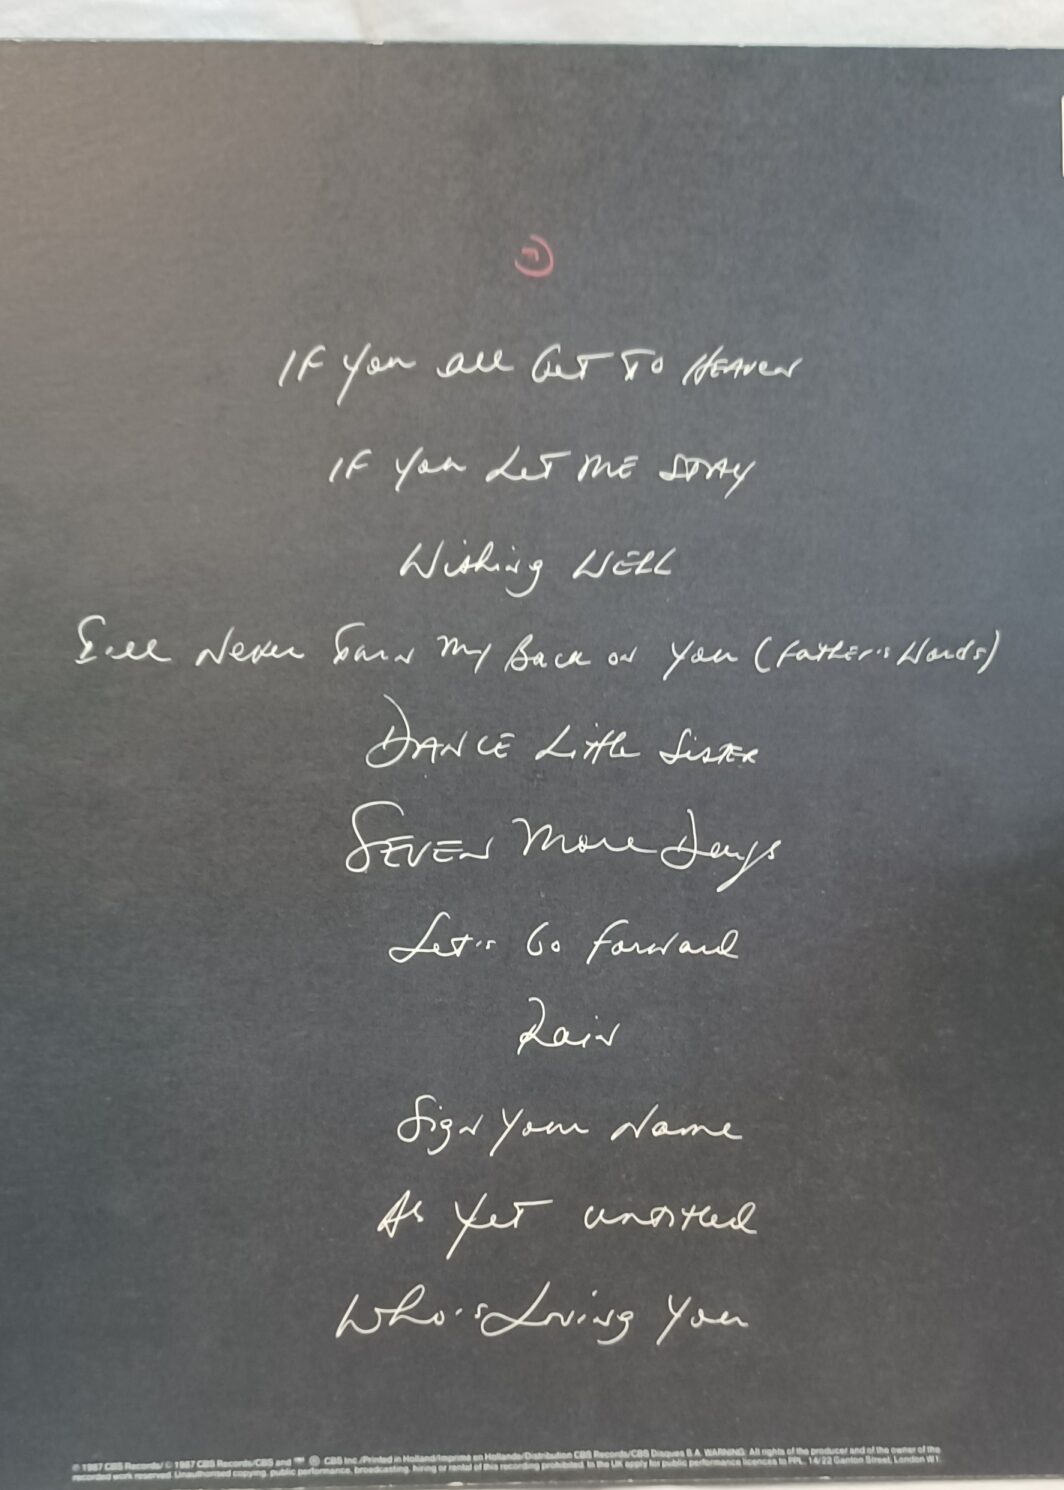 IF You all Get To HEAVEN
IF You Let ME STAY
Wishing WELL
I'll Never Turn My Back on You (Father's Words)
DANCE Little SISTER
SEVEN More Days
Let's Go Forward
Rain
Sign Your Name
As Yet Untitled
Who's Loving You
℗ 1987 CBS Records/© 1987 CBS Records/CBS and ® CBS Inc./Printed in Holland/Imprimé en Hollande/Distribution CBS Records/CBS Disques S.A. WARNING: All rights of the producer and of the owner of the
recorded work reserved. Unauthorised copying, public performance, broadcasting, hiring or rental of this recording prohibited. In the UK apply for public performance licences to PPL, 14/22 Ganton Street, London W1.